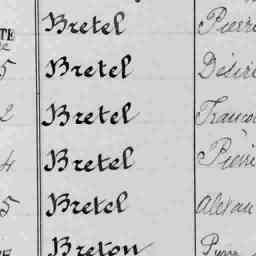 TE Bretel Pierre
5 Bretel Désiré
2 Bretel Franco
4 Bretel Pierre
5 Bretel Alexan
Breton